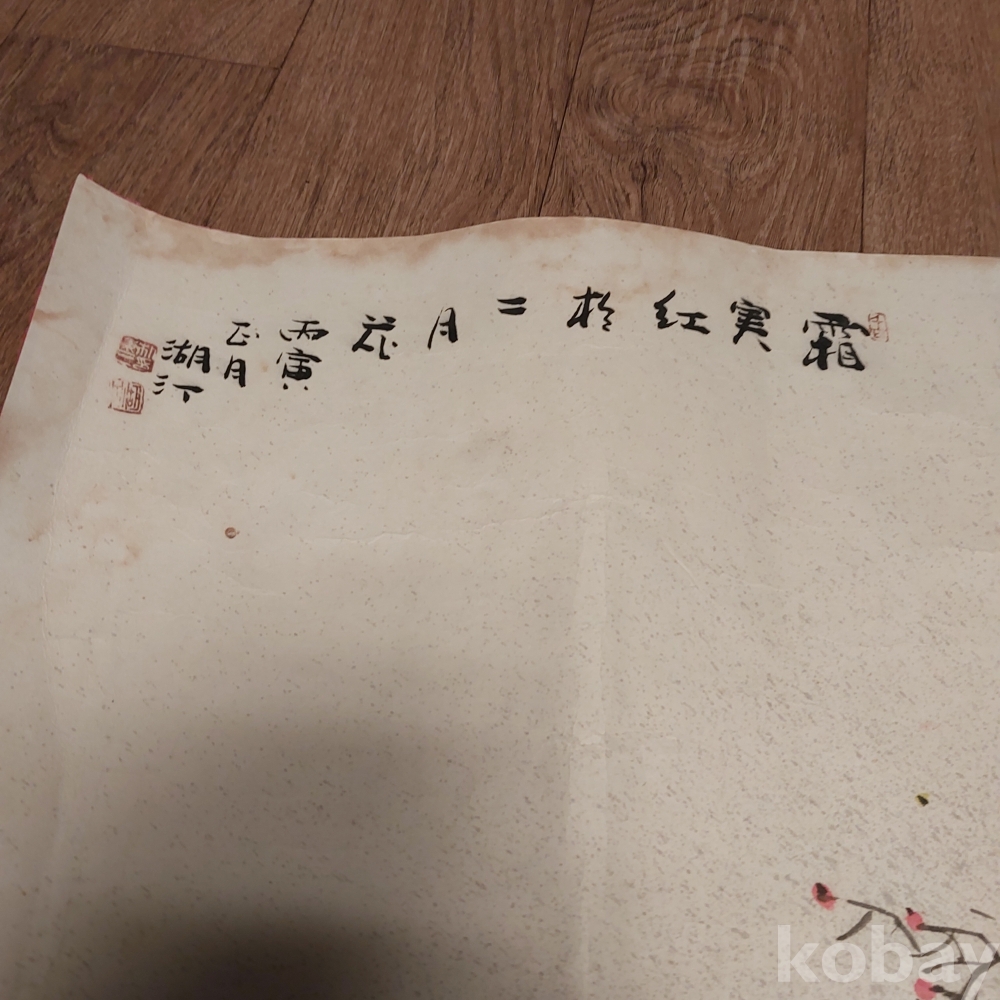 霜実紅於二月花
丙寅
正月
湖汀
kobay